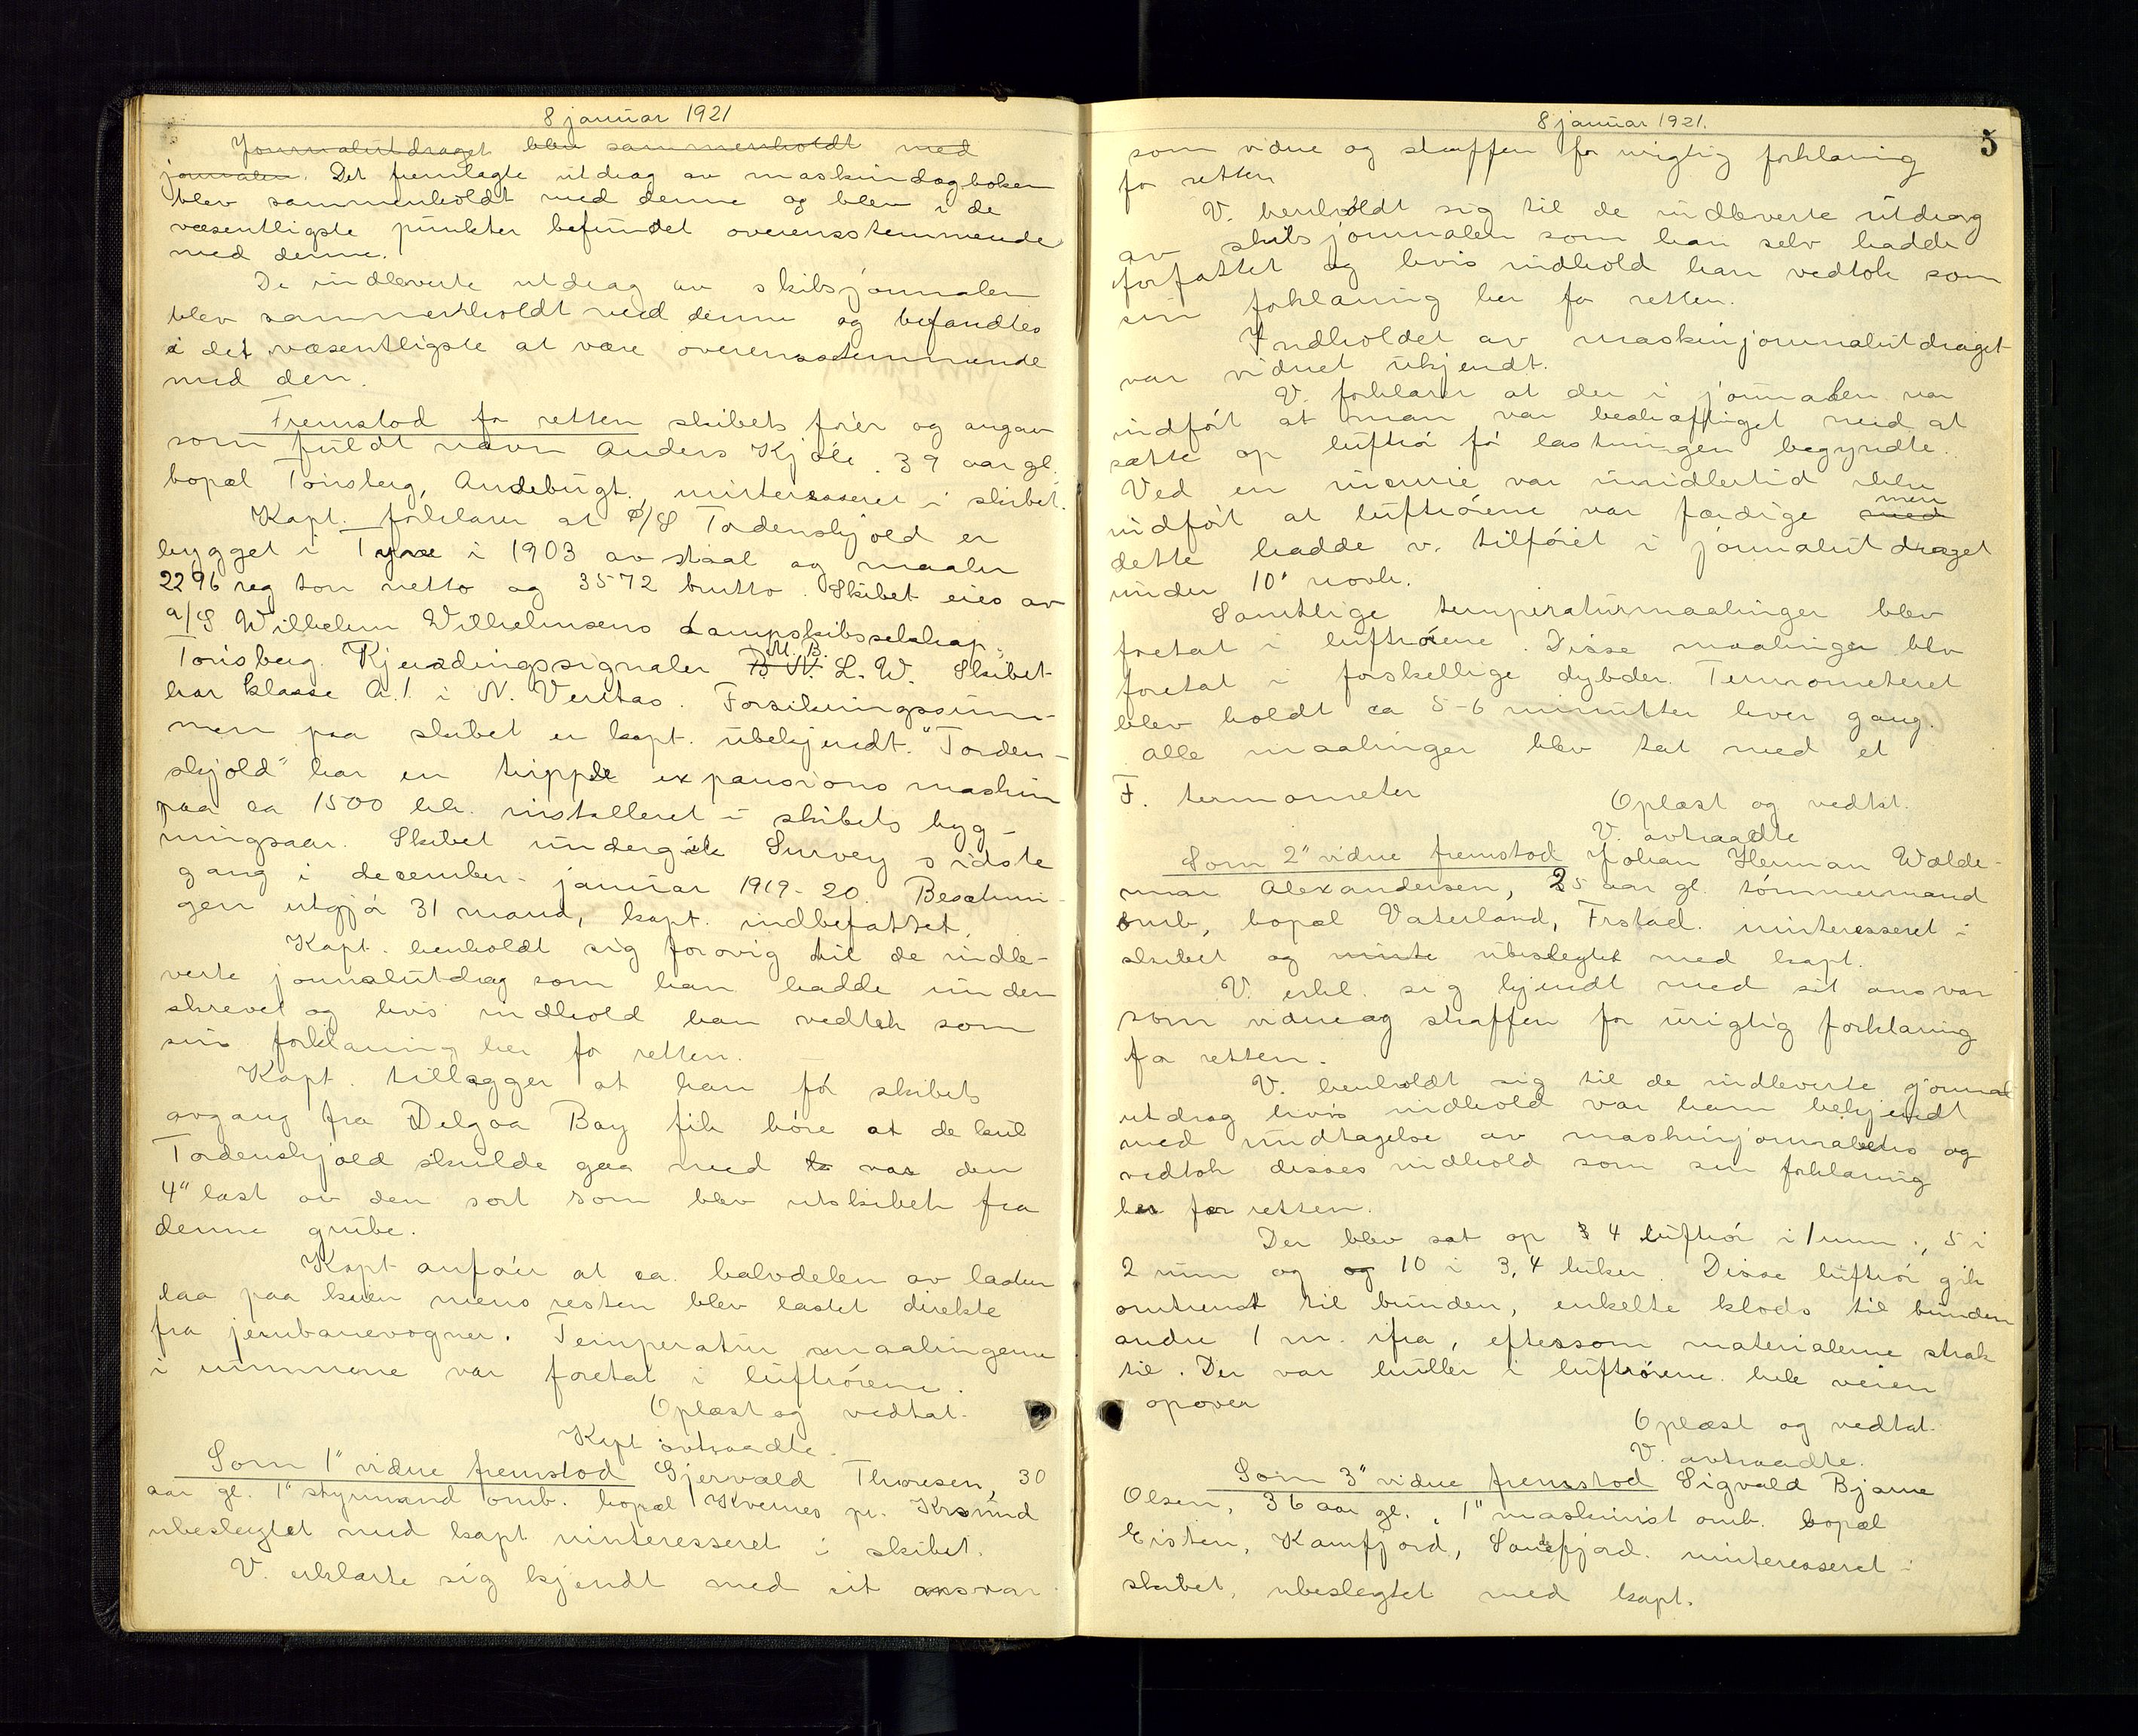 8 januar 1921
Journalutdraget blev sammenholdt med
journalen. Det fremlagte utdrag av maskindagboken
blev sammenholdt med denne og blev i de
væsentligste punkter befundet overensstemmende
med denne.
De indleverte utdrag av skibsjournalen
blev sammenholdt med denne og befandtes
i det væsentligste at være overensstemmende
med den.
Fremstod for retten skibets fører og angav
som fuldt navn Anders Kjøle. 39 aar gl.
bopæl Tønsberg, Andebugt., uinteressert i skibet.
Kapt. forklarer at D/S Tordenskjold er
bygget i Tyne i 1903 av staal og maaler
2296 reg ton netto og 3572 brutto. Skibet eies av
a/S Wilhelm Wilhelmsens dampskibsselskap,
Tønsberg. Kjendingssignaler B. N. M. B. L. W. Skibet
har klasse A.1. i N. Veritas. Forsikringssum-
men paa skibet er kapt. ubekjendt. "Torden-
skjold" har en trippel expansions maskin
paa ca 1500 hk. installeret i skibets byg-
ningsaar. Skibet undergik Survey sidste
gang i december - januar 1919-20. Besætnin-
gen utgjør 31 mand, kapt. indbefattet.
Kapt. henholdt sig forøvrig til de indle-
verte journalutdrag som han hadde under
skrevet og hvis indhold han vedtok som
sin forklaring her for retten.
Kapt. tillægger at han før skibets
avgang fra Delgoa Bay fik høre at de kul
Tordenskjold skulde gaa med var den
4" last av den sort som blev utskibet fra
denne grube.
Kapt anfører at ca. halvdelen av lasten
laa paa kaien mens resten blev lastet direkte
fra jernbanevogner. Temperatur maalingerne
i rummene var foretat i luftrørene.
Oplæst og vedtat.
Kapt avtraadte.
Som 1" vidne fremstod Gjervald Thoresen, 30
aar gl. 1" styrmand omb. bopæl Kvernes pr. Krsund
ubeslegtet med kapt uinteresseret i skibet.
V. erklærte sig kjendt med sit ansvar
8 januar 1921.
5
som vidne og straffen for urigtig forklaring
for retten
V. henholdt sig til de indleverte utdrag
av skibsjournalen som han selv hadde
forfattet og hvis indhold han vedtok som
sin forklaring her for retten.
Indholdet av maskinjournalutdraget
var vidnet ukjendt.
V. forklarer at der i journalen var
indført at man var beskjæftiget med at
sætte op luftrør før lastningen begyndte.
Ved en var imidlertid ikke
indført at luftrørene var færdige med men
dette hadde v. tilføiet i journalutdraget
under 10' novbr.
Samtlige temperaturmaalinger blev
foretat i luftrørene. Disse maalinger blev
foretat i forskellige dybder. Termometeret
blev holdt ca 5-6 minutter hver gang.
Alle maalinger blev tat med et
F. termometer
Oplæst og vedtat.
V. avtraadte
Som 2" vidne fremstod Johan Herman Walde-
mar Alexandersen, 25 aar gl. tømmermand
omb, bopæl Vaterland, Frstad. uinteresseret i
skibet og ubeslegtet med kapt.
V. erkl. sig kjendt med sit ansvar
som vidne og straffen for urigtig forklaring
for retten.
V. henholdt sig til de indleverte journal
utdrag hvis indhold var ham bekjendt
med undtagelse av maskinjournalens og
vedtok disses indhold som sin forklaring
her for retten.
Der blev sat op 4 luftrør i 1 rum., 5 i
2 rum og og 10 i 3, 4 luker. Disse luftrør gik
omtrent til bunden, enkelte klods til bunden
andre 1 m. ifra, eftersom materialerne strak
til. Der var huller i luftrørene hele veien
opover
Oplæst og vedtat.
V. avtraadte.
Som 3" vidne fremstod Sigvald Bjarne
Olsen, 36 aar gl., 1" maskinist omb. bopæl
Eisten, Kamfjord, Sandefjord. uinteresseret i
skibet, ubeslegtet med kapt.